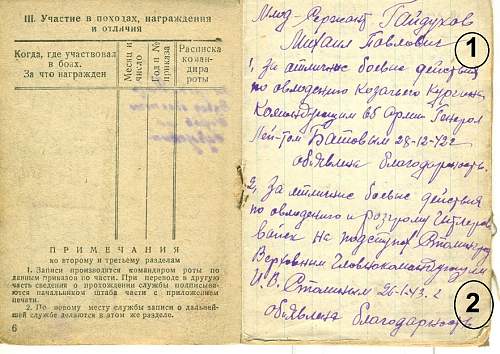 III. Участие в походах, награждения
и отличия
Когда, где участвовал
в боях.
За что награжден
Месяц и
число
Год и №
приказа
Расписка
коман-
дира
роты
ПРИМЕЧАНИЯ
ко второму и третьему разделам
1. Записи производятся командиром роты по
данным приказов по части. При переводе в другую
часть сведения о прохождении службы подписыва-
ются начальником штаба части с приложением
печати.
2. По новому месту службы записи о дальней-
шей службе делаются в этом же разделе.
6
Млад-Сержант Гайдуков
Михаил Павлович
1
1, За отличные боевые действия
по овладению Казачьего Кургана
Командующим 65 Армии Генерал
Лей-том Батовым 28-12-42г
объявлена благодарность.
2, За отличные боевые действия
по овладению и разгрому Гитлеров
войск на подступах Сталинграда
Верховным Главнокомандующим
И.В. Сталиным 26-1-43.г
объявлена благодарность
2